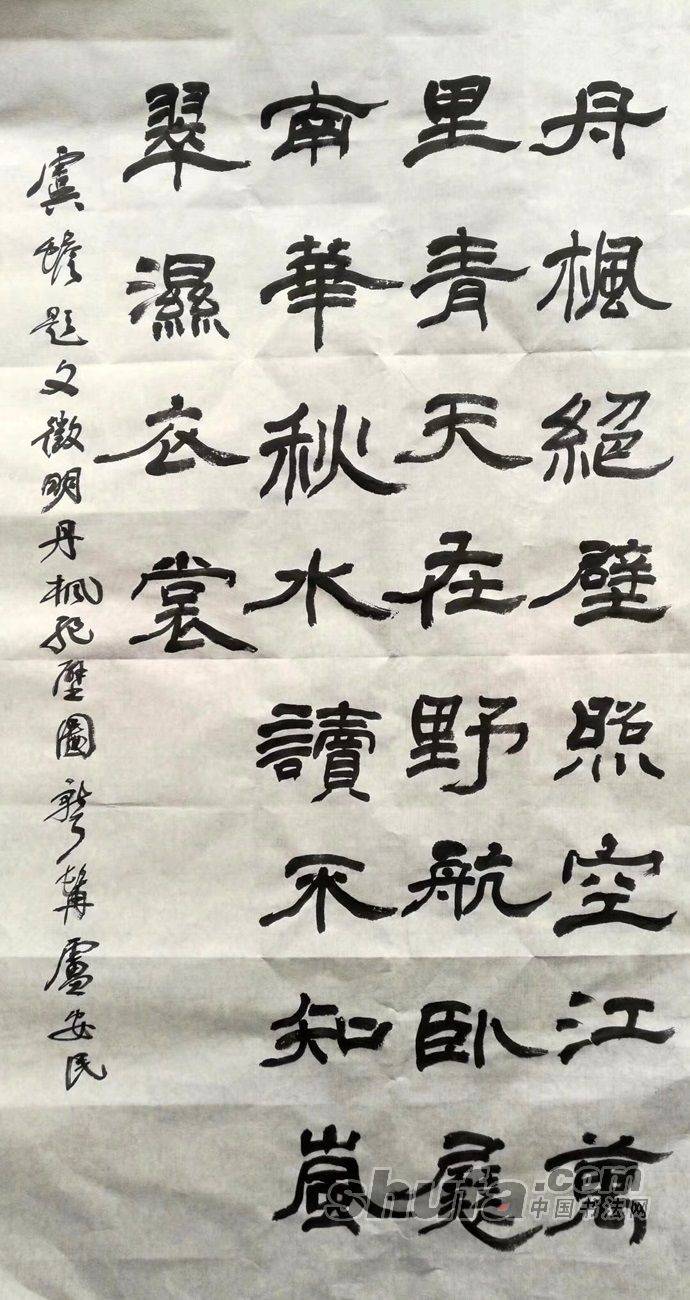 丹楓絕壁照空江萬
里青天在野航臥展
南華秋水讀不知嵐
翠濕衣裳
虞題文徵明丹楓絕壁圖盧安民
shufa.com
中国书法网